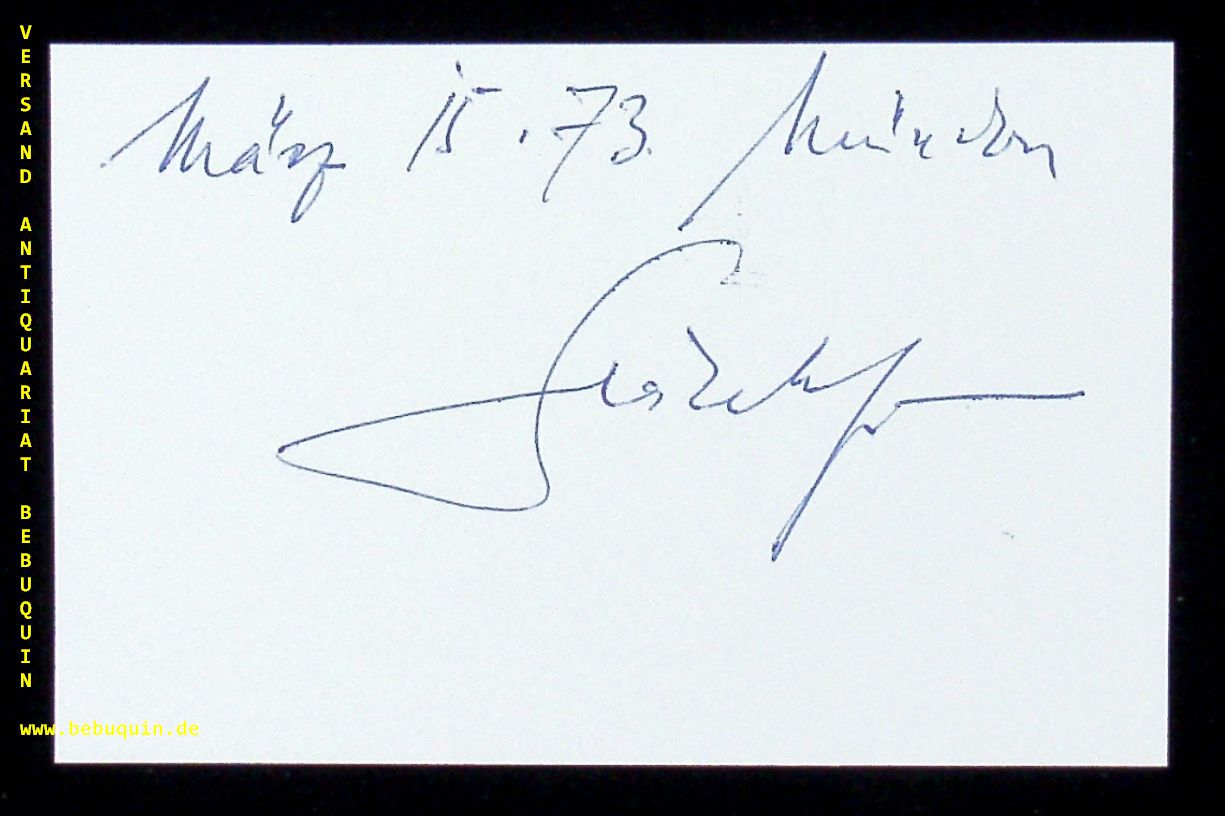 VERSAND ANTIQUARIAT BEBUQUIN
März 15. 73. München
www.bebuquin.de